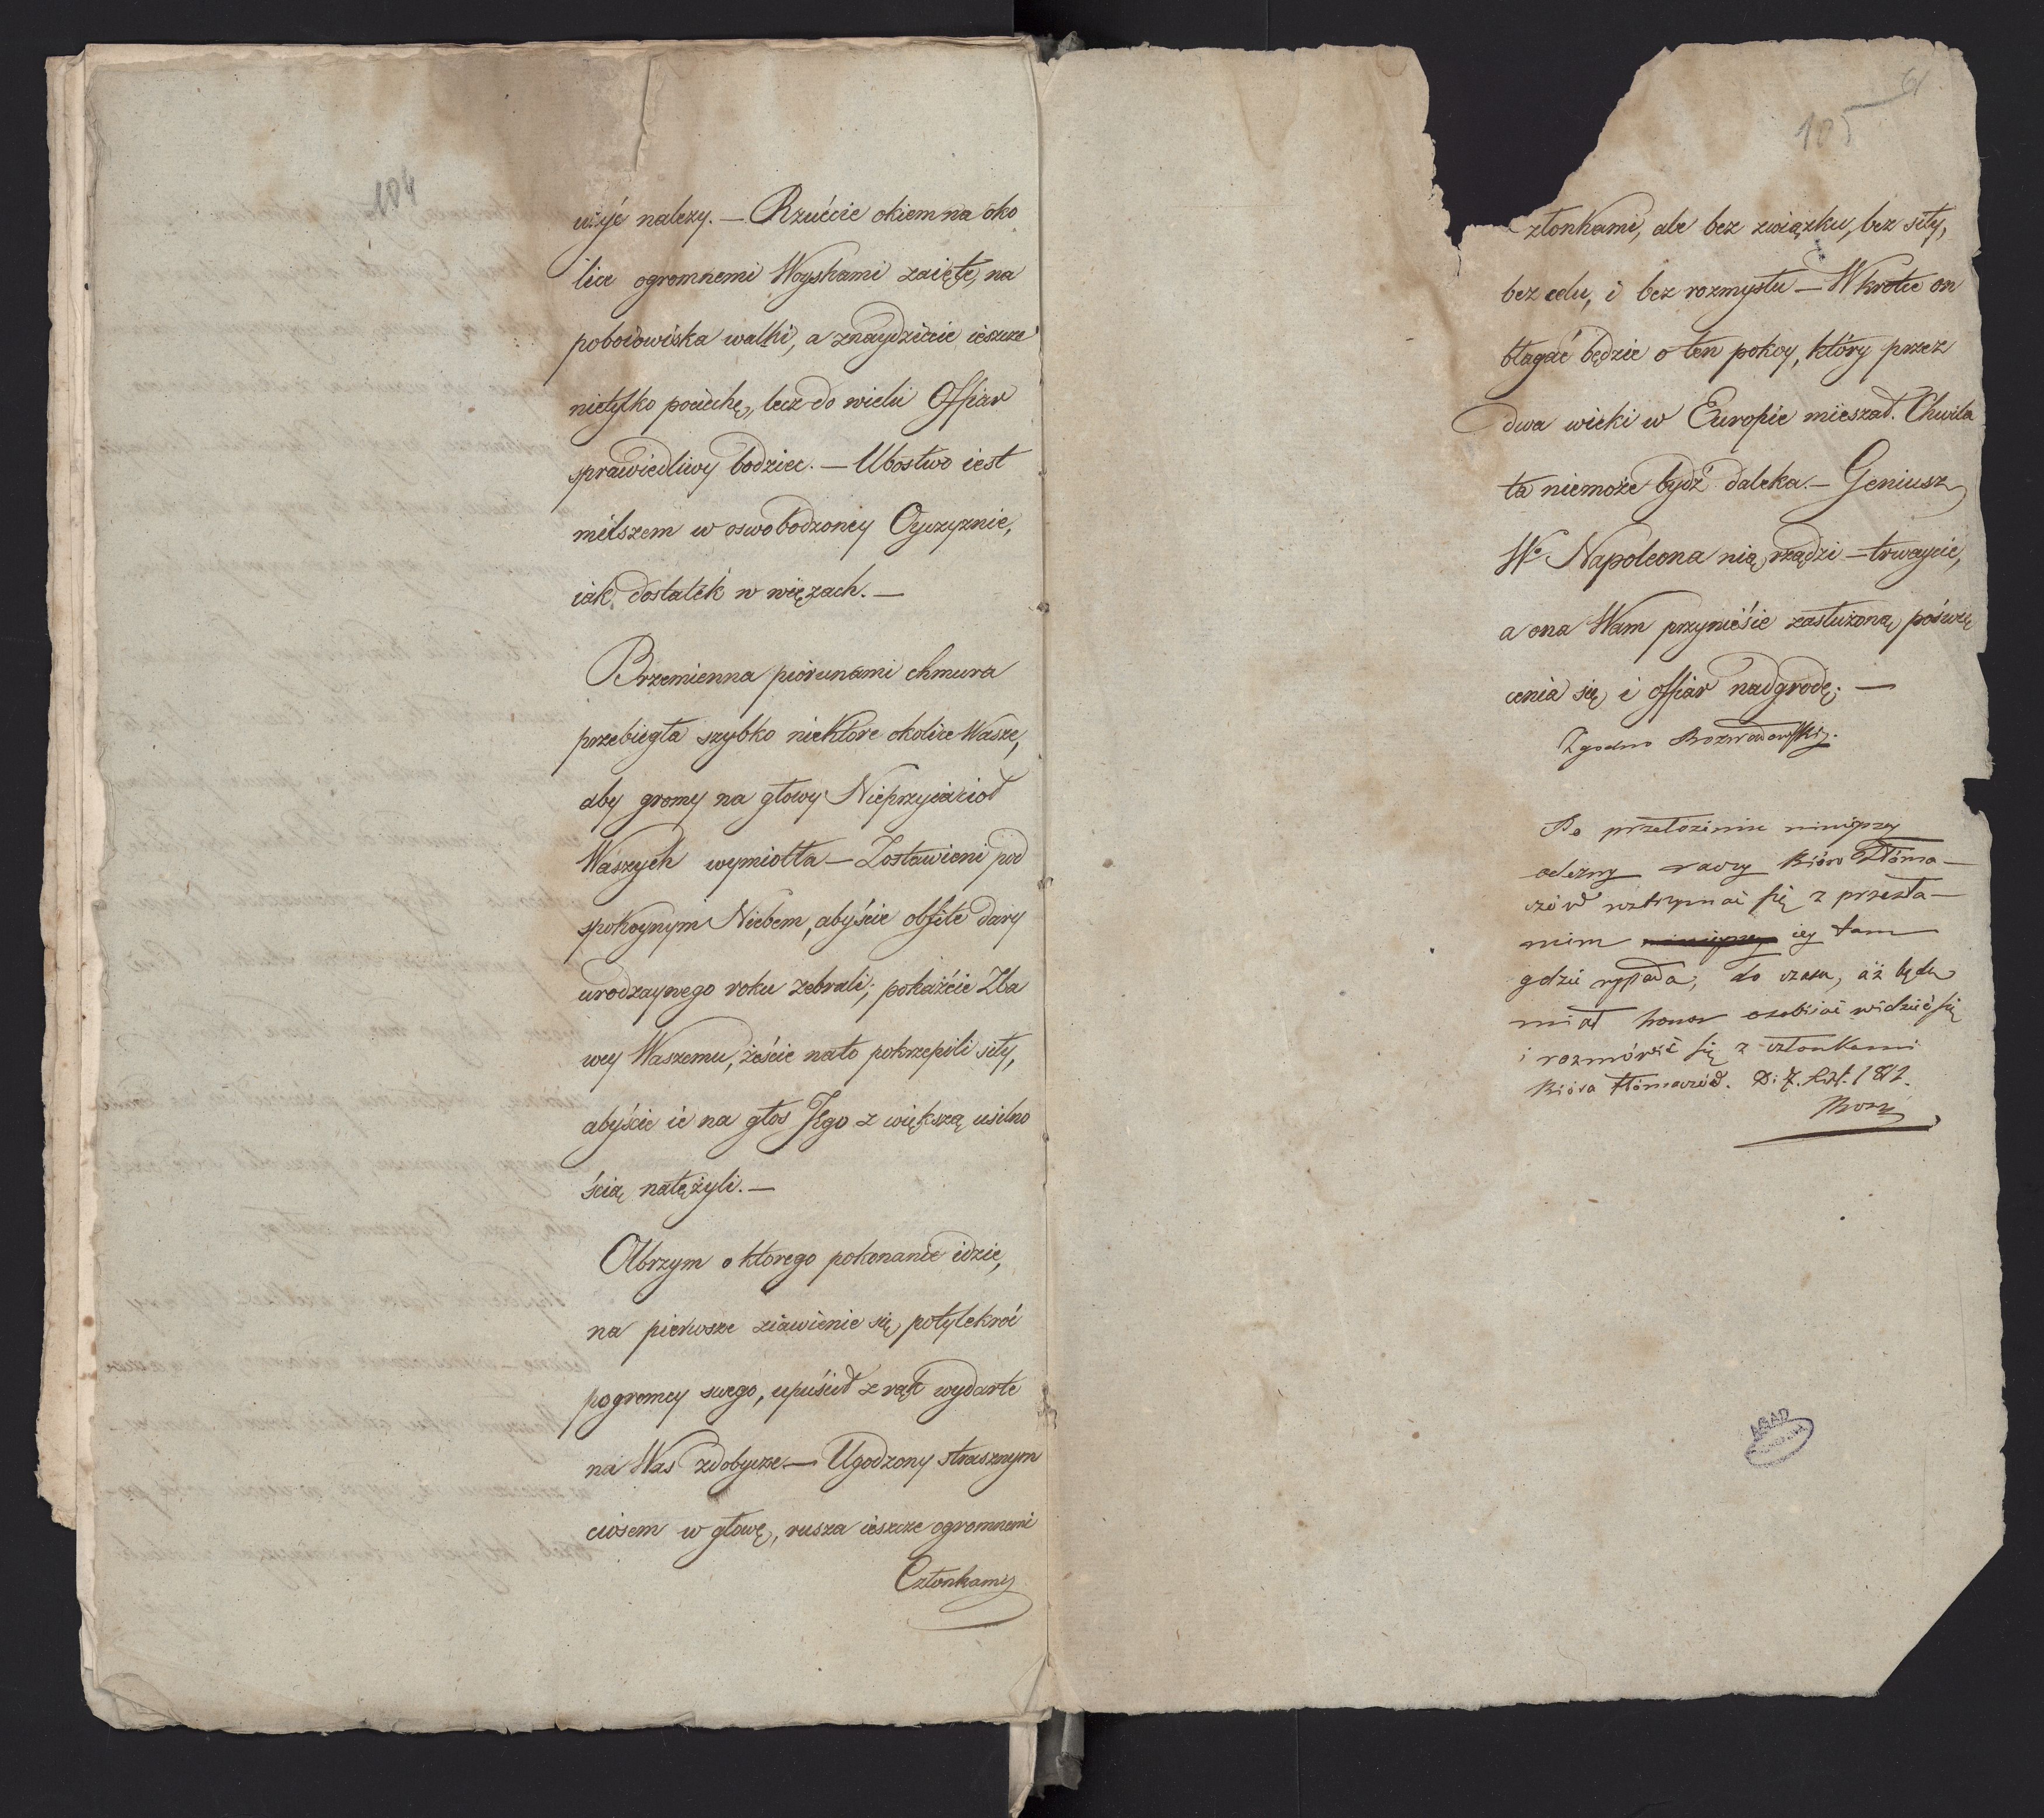 104
użyć należy. — Rzućcie okiem na oko
lice ogromnemi Woyskami zaięte, na
poboiowiska walki, a znaydziecie ieszcze
nietylko pociechę, lecz do wielu Offiar
sprawiedliwy bodziec. — Ubostwo iest
milszem w oswobodzoney Oyczyznie,
iak dostatek w więzach. —
Brzemienna piorunami chmura
przebiegła szybko niektore okolice Wasze,
aby gromy na głowy Nieprzyiacioł
Waszych wymiotła — Zostawieni pod
spokoynym Niebem, abyście obfite dary
urodzaynego roku zebrali; pokażcie Zba
wcy Waszemu, żeście nato pokrzepili siły,
abyście ie na głos Jego z większą usilno
ścią natężyli. —
Olbrzym o ktorego pokonanie idzie,
na pierwsze ziawienie się potylekroć
pogromcy swego, upuścił z rąk wydarte
na Was zdobycze — Ugodzony strasznym
ciosem w głowę, rusza ieszcze ogromnemi
Członkami
105
członkami, ale bez związku, bez siły,
bez celu, i bez rozmysłu — Wkrotce on
błagać będzie o ten pokoy, który przez
dwa wieki w Europie mieszał. Chwila
ta niemoże bydź daleka. — Geniusz
Wo Napoleona nią rządzi — trwaycie,
a ona Wam przyniesie zasłużoną poświę
cenia się i offiar nadgrodę. —
Zgodno Rozwadowski.
Po przełożeniu ninieyszey
odezwy raczy Bióro Tłóma—
czów wstrzymać się z przesła—
niem iey tam
gdzie wypada, do czasu, aż będę
miał honor osobiście widzieć się
i rozmówić się z członkami
Bióra tłómaczów. D: 7. 1812.
AGAD